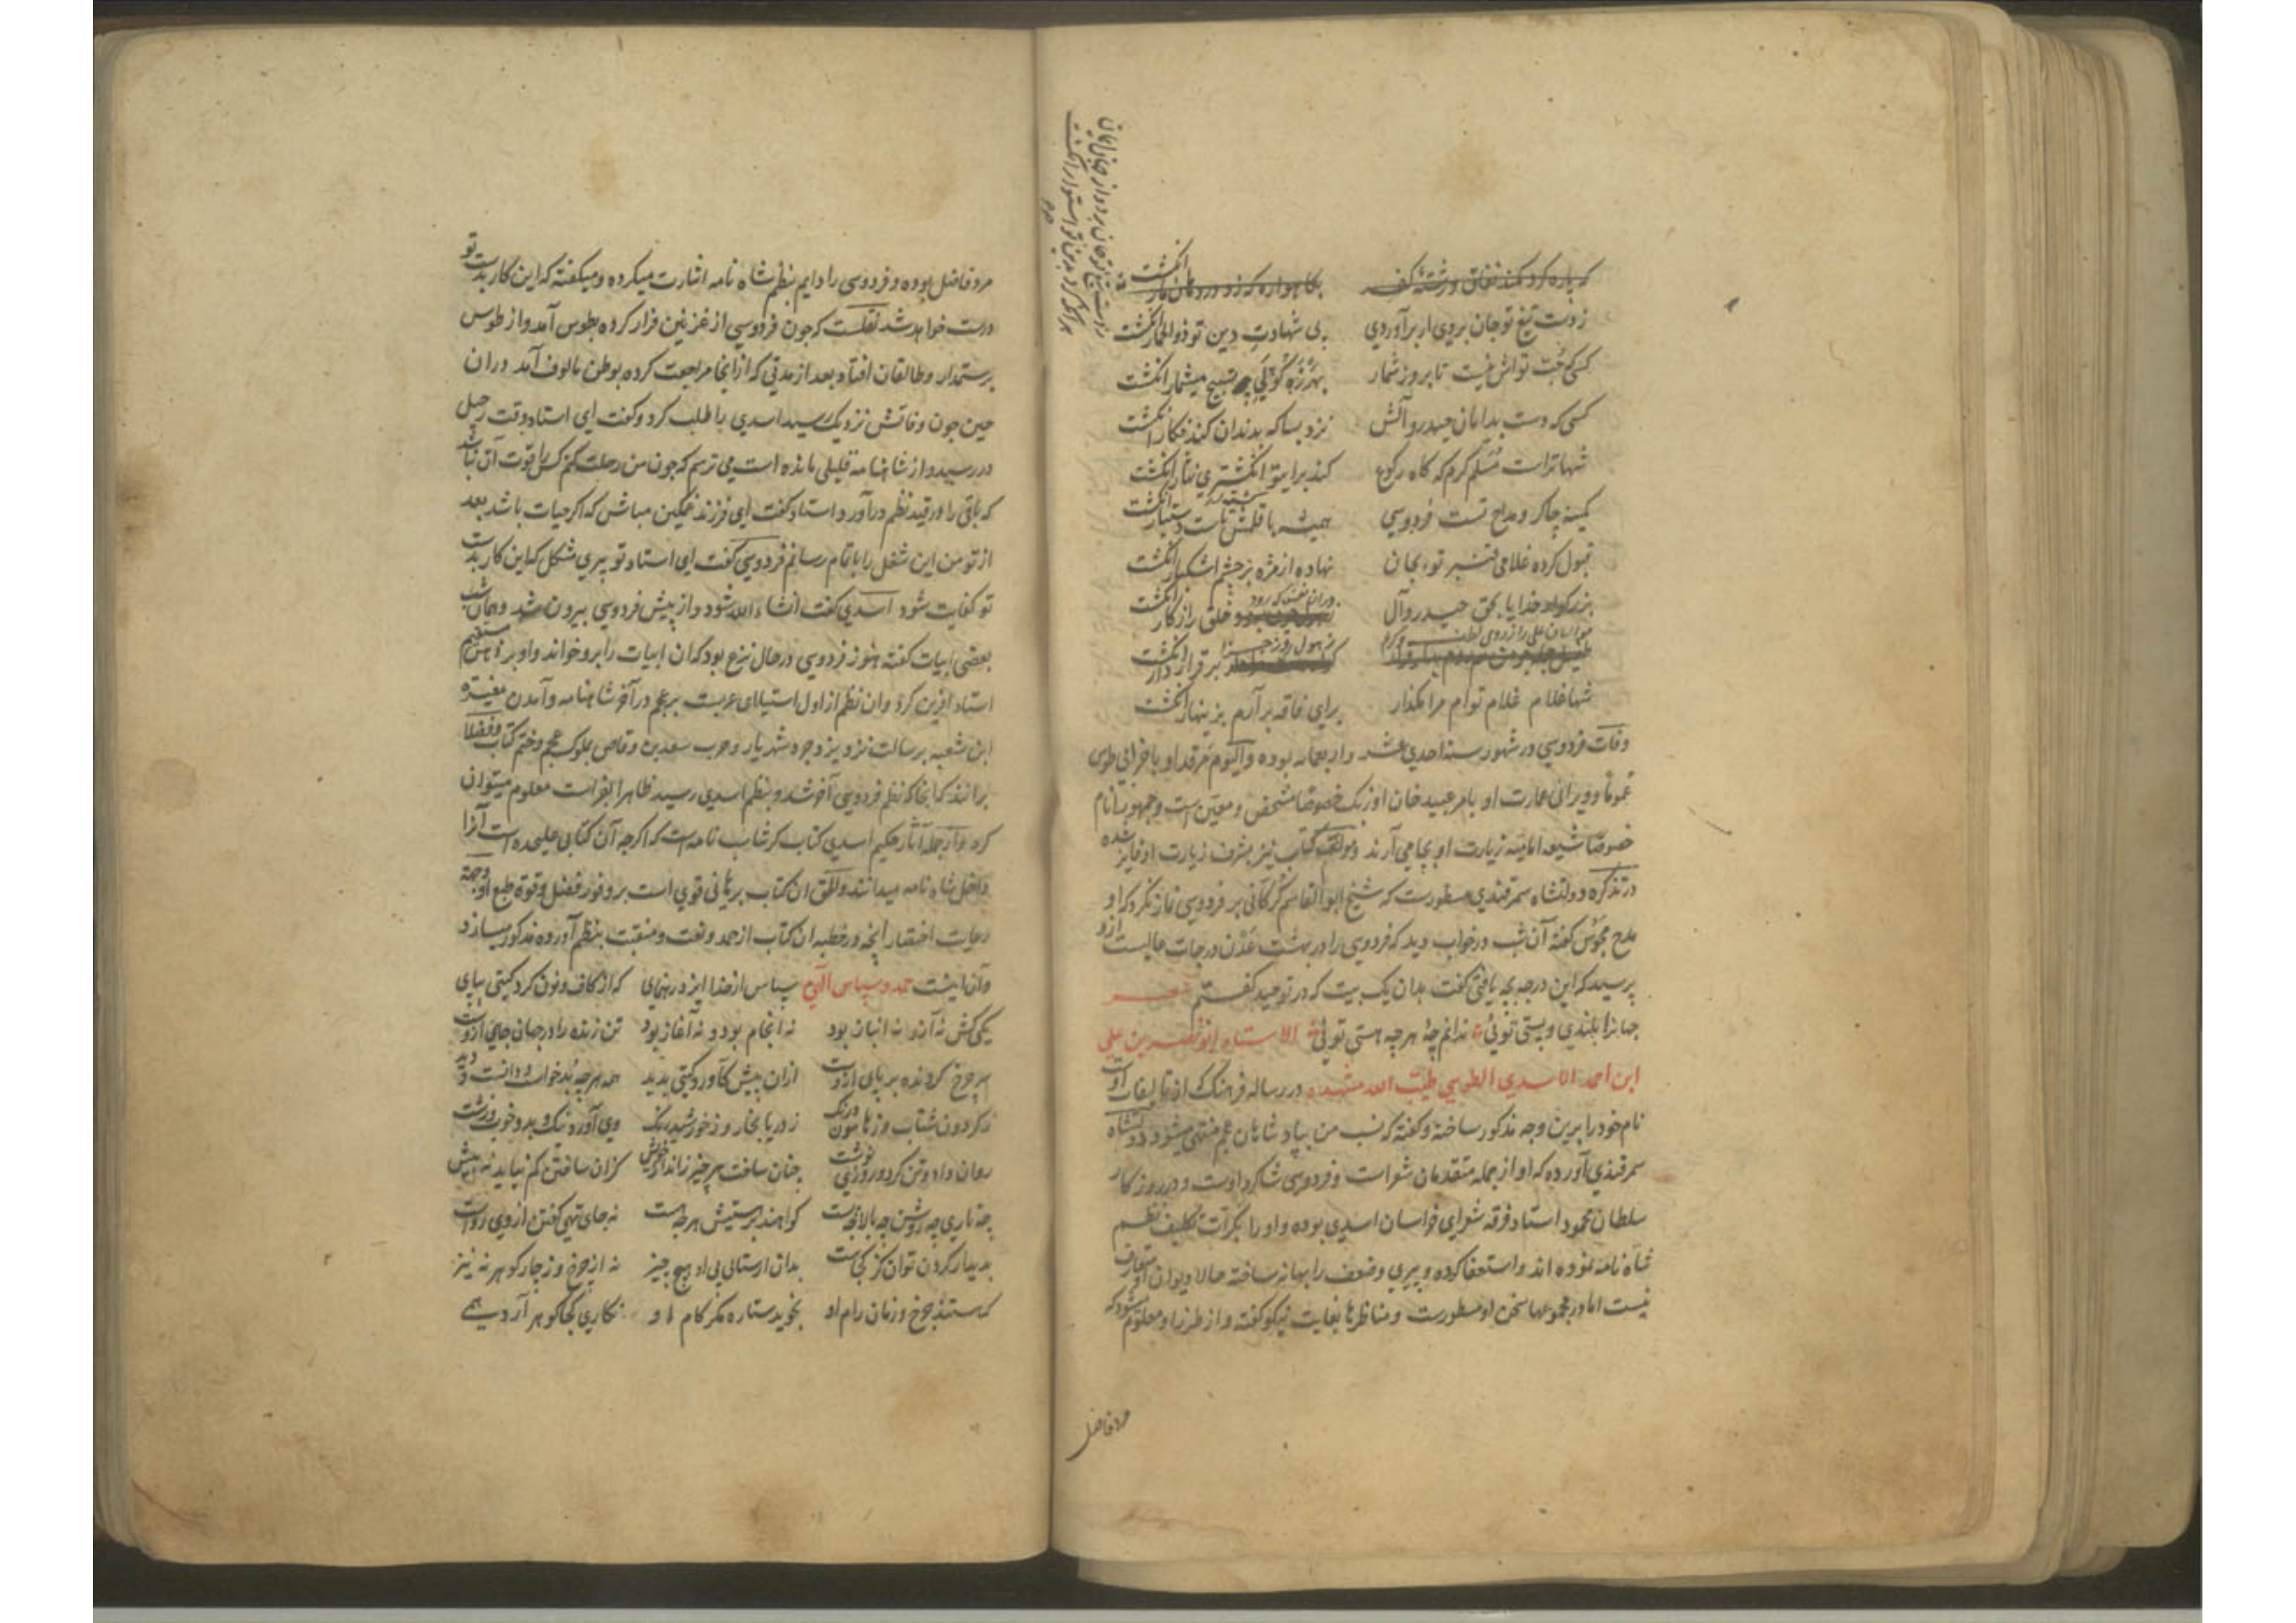 زدست تیغ تو جان بردی ار برآوردی بی شهادت دین تو ذوالخمار انگشت
کسی که حب تواش نیست تا بروز شمار بهرزه گو پی تسبیح میشمار انگشت
کسی که دست بدامان حیدر و آلش نزد بسا که بدندان کند فکار انگشت
شها تراست مسلم کرم که گاه رکوع کند برای تو انگشتری نثار انگشت
کمینه چاکر و مداح تست فردوسی همیشه با قلمش دستیار انگشت
قبول کرده غلامی قنبر تو بجان نهاده از مژه بر چشم اشکبار انگشت
بزرگوار خدایا بحق حیدر و آل دران نفس که رود خلق را ز کار انگشت
ز هول روز جزا بر قرار دار انگشت
شها غلام غلام توام مرا مگذار برای فاقه برآرم بزینهار انگشت
وفات فردوسی در شهور سنه احدی عشر واربعمائه بوده والیوم مرقد او با خرابی طوس
عموما و ویرانی عمارت او بامر عبید خان اوزبک خصوصا مشخص و معین است و جمهور انام
خصوصا شیعه امامیه زیارت او بجا می آرند و مؤلف کتاب نیز بشرف زیارت او فایز شده
در تذکره دولتشاه سمرقندی مسطورست که شیخ ابوالقاسم گرکانی بر فردوسی نماز نکرد که او
مدح مجوس گفته آن شب در خواب دید که فردوسی را در بهشت عدن درجات عالیست ازو
پرسید که این درجه بچه یافتی گفت بدان یک بیت که در توحید گفتم شعر
جهانرا بلندی و پستی توئی ندانم چه هر چه هستی توئی الاستاد ابو نصر بن علی
ابن احمد الاسدی الطوسی طیب الله مشهده در رساله فرهنگ که از تالیفات اوست
نام خود را برین وجه مذکور ساخته و گفته که نسب من بپادشاهان عجم منتهی میشود دولتشاه
سمرقندی آورده که او از جمله متقدمان شعراست و فردوسی شاگرد اوست و در روزگار
سلطان محمود استاد فرقه شعرای خراسان اسدی بوده و او را بکرات تکلیف نظم
شاه نامه نموده اند و استعفا کرده و پیری و ضعف را بهانه ساخته حالا دیوان او متعارف
نیست اما در مجموعها سخن او مسطورست و مناظرها بغایت نیکو گفته و از طرز او معلوم میشود که
مرد فاضل
مرد فاضل بوده و فردوسی را دایم بنظم شاه نامه اشارت میکرده و میگفته که این کار بدست تو
درست خواهد شد نقلست که چون فردوسی از غزنین فرار کرده بطوس آمد و از طوس
برستمدار و طالقان افتاد بعد از مدتی که از انجا مراجعت کرده بوطن مالوف آمد دران
حین چون وفاتش نزدیک رسید اسدی را طلب کرد و گفت ای استاد وقت رحیل
در رسید و از شاهنامه قلیلی مانده است می ترسم که چون من رحلت کنم کس را قوت آن نباشد
که باقی را در قید نظم درآورد استاد گفت ای فرزند غمگین مباش که اگر حیات باشد بعد
از تو من این شغل را باتمام رسانم فردوسی گفت ای استاد تو پیری مشکل که این کار بدست
تو کفایت شود اسدی گفت انشاء الله شود و از پیش فردوسی بیرون شد و همان شب
بعضی ابیات گفته هنوز فردوسی در حال نزع بود که ان ابیات را برو خواند و او بر ذهن مستقیم
استاد افرین کرد و ان نظم از اول استیلای عربست بر عجم در آخر شاهنامه و آمدن مغیرة
ابن شعبه برسالت نزد یزدجرد شهریار و حرب سعد بن وقاص بملوک عجم و ختم کتاب و فضلا
برانند که انجا که نظم فردوسی آخر شد و بنظم اسدی رسید ظاهرا بفراست معلوم میتوان
کرد و از جمله آثار حکیم اسدی کتاب کرشاسب نامه است که اگرچه آن کتابی علیحده است آنرا
داخل شاه نامه میدانند والحق ان کتاب برهانی قوی است بر وفور فضل و قوة طبع او وجهة
رعایت اختصار انچه در خطبه ان کتاب از حمد و نعت و منقبت بنظم آورده مذکور میسازد
و آن اینست حمد و سپاس الهی سپاس از خدا ایزد رهنمای که از کاف و نون کرد گیتی بپای
یکی کش نه آز و نه انباز بود نه انجام بود و نه آغاز بود تن زنده را در جهان جای ازوست
هم چرخ گردنده بر پای ازوست ازان پیش کآورد گیتی پدید همه هرچه بد خواست دانست و دید
ز گردون شتاب و ز هامون درنگ ز دریا بخار و ز خورشید رنگ وی آورد نیک و بد و خوب و زشت
روان داد و تن کرد و روزی نوشت چنان ساخت هر چیز ز انداز خویش کزان ساختن کم نیاید نه بیش
چه تاری چه روشن چه بالا چه پست گواهند بر هستیش هرچه هست نه جای تهی گفتن از وی رواست
نه دیدار کردن توان کز کجاست بدان ار ستائی بی او هیچ چیز نه از چرخ و ز چار گوهر نه نیز
که ستند چرخ و زمان رام او نجوید ستاره مگر کام او نگاری کجا گوهر آرد همی